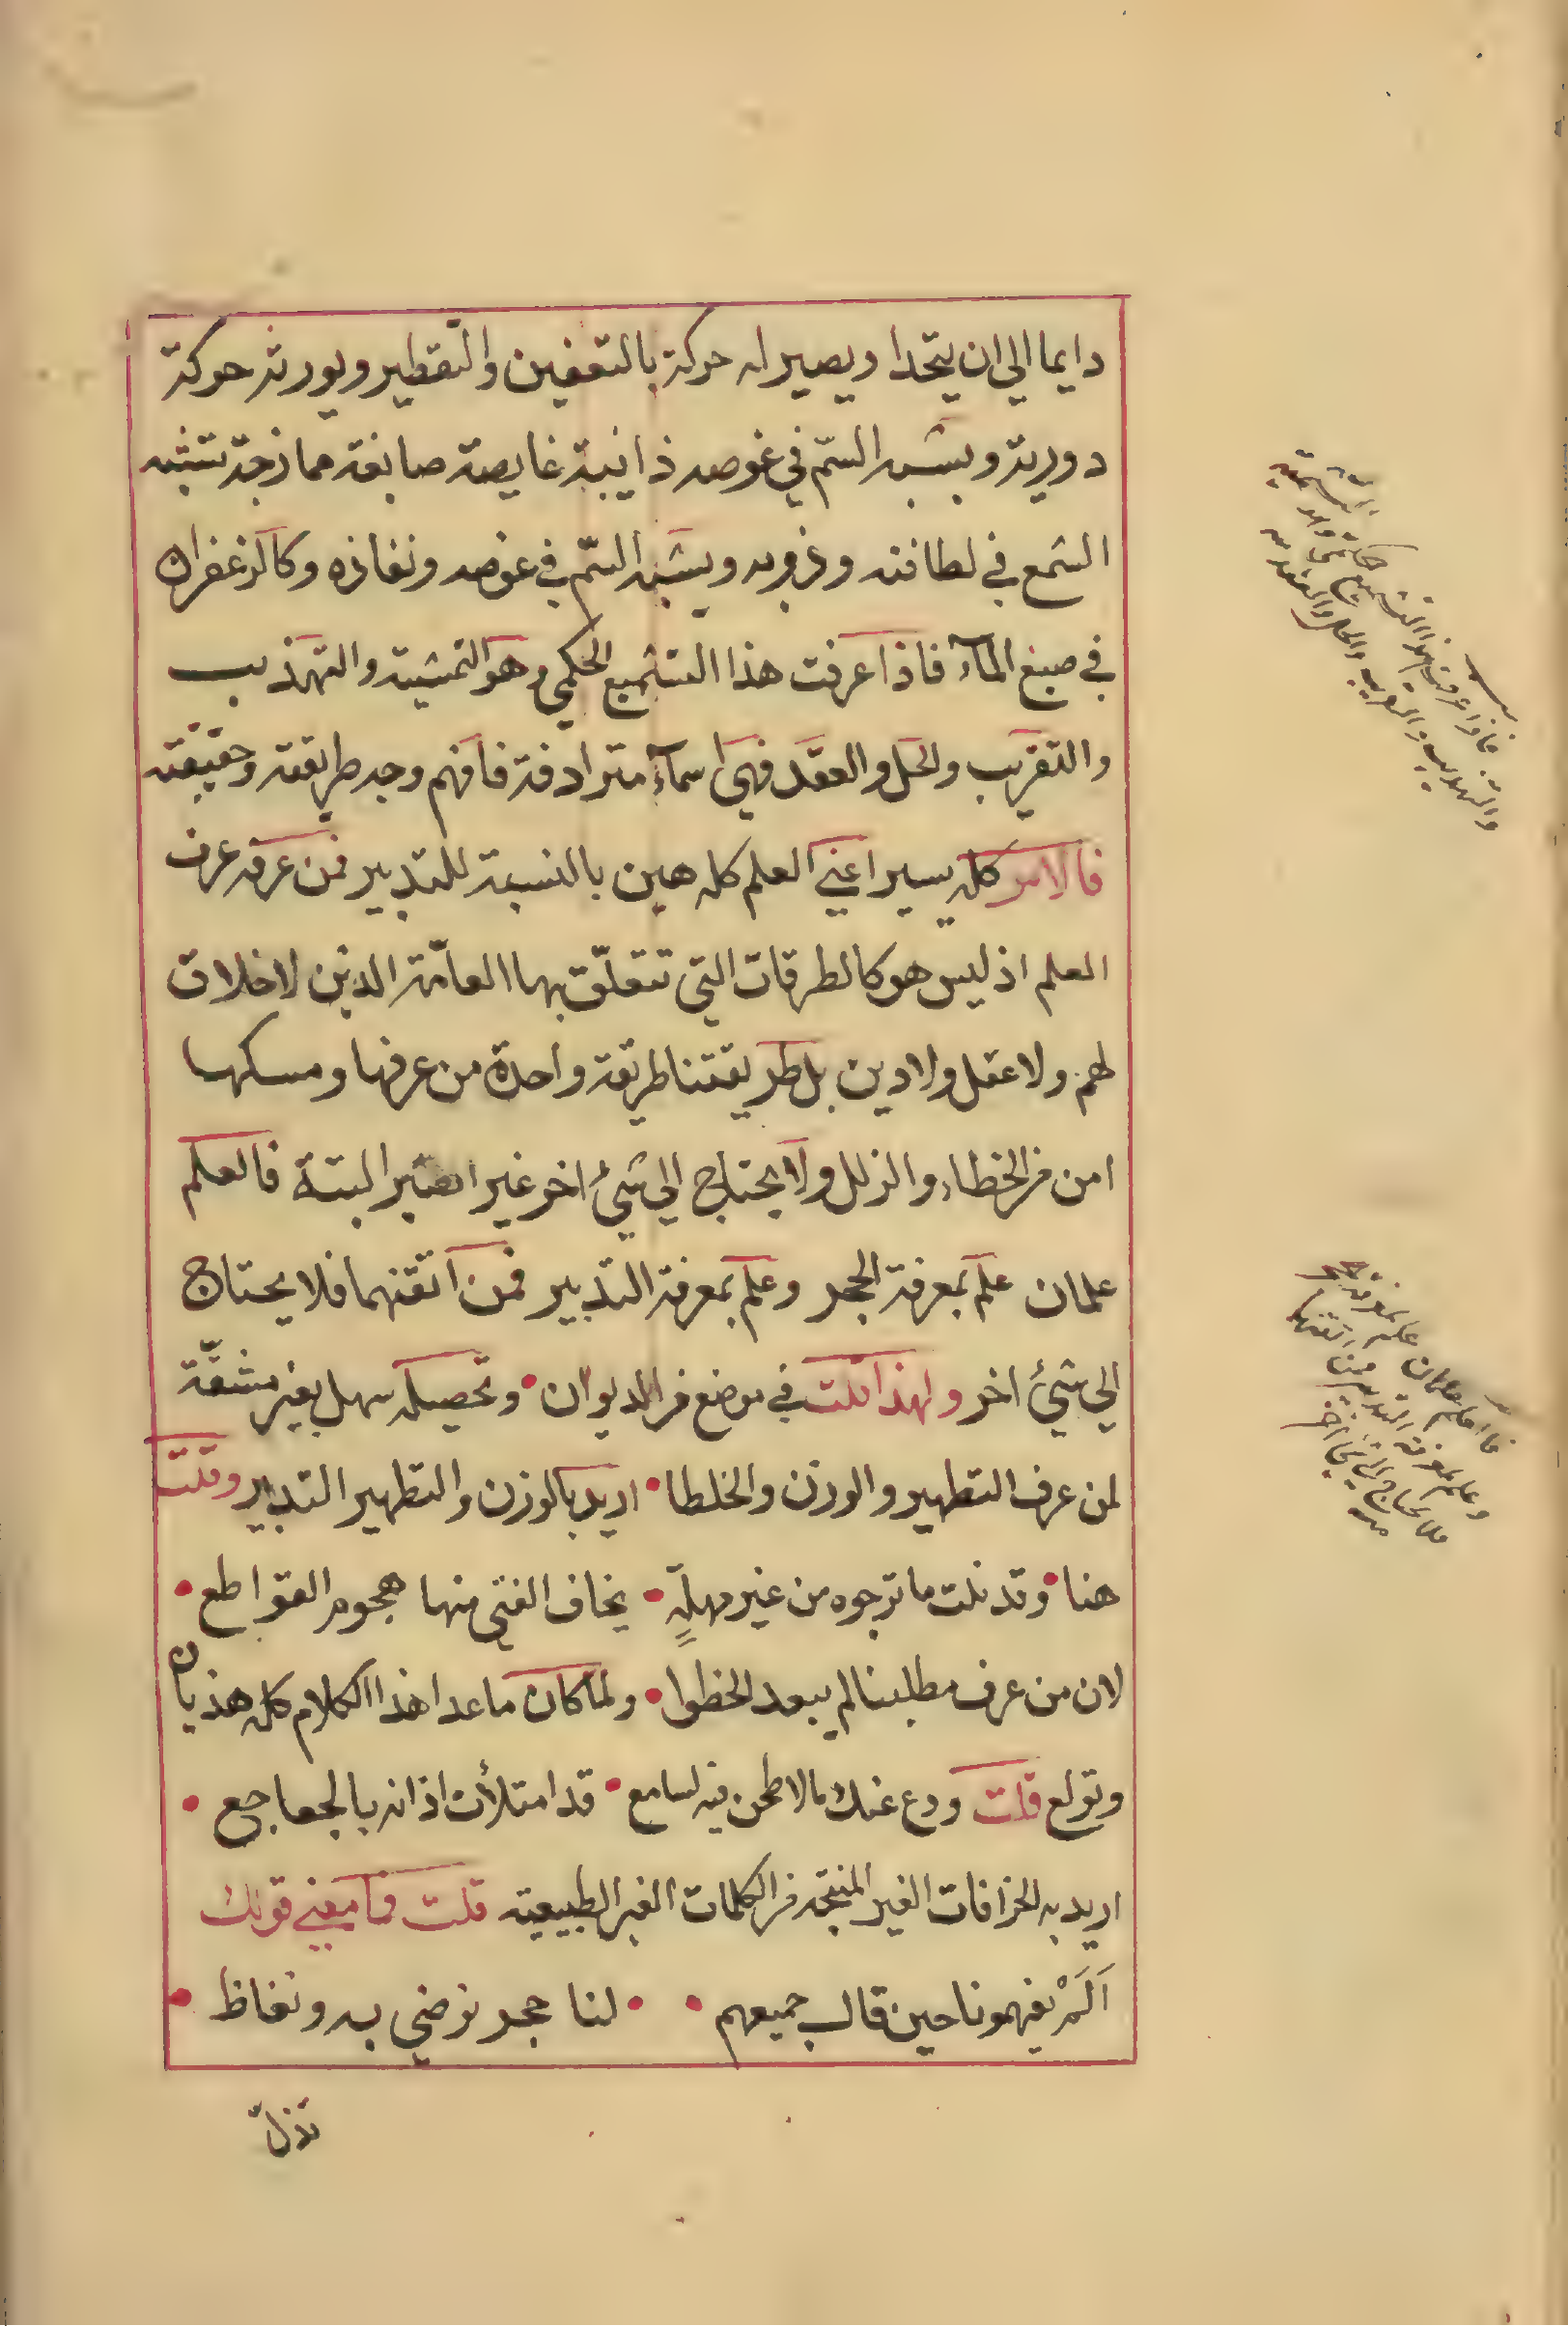 دايما الي ان يتحدا ويصير له حركة بالتعفين والتقطير ويورثه حركة
دورية ويشبه السّم في غوصه ذايبة غايصة صابغة ممازجة تشبه
الشمع في لطافته وذوبه ويشبه السّم في غوصه ونفاذه وكالزعفران
في صبغ المآء فاذا عرفت هذا التشميع الحكمي وهو التمشية والتهذيب
والتقريب والحل والعقد فهي اسمآء مترادفة فافهم وجه طريقته وحقيقته
فالامر كله يسير اعني العلم كله هين بالنسبة للتدبير فمن عرفه عرف
العلم اذ ليس هو كالطرقات التي تتعلّق بها العامّة الذين لا خلاق
لهم ولا عقل ولا دين بل طريقتنا طريقة واحدة من عرفها ومسكها
امن من الخطاء والزلل ولا يحتاج الي شيء اخر غير البتة فالعلم
علمان علم بمعرفة الحجر وعلم بمعرفة التدبير فمن اتقنهما فلا يحتاج
الي شيء اخر ولهذا قلت في موضع من الديوان • وتحصيله سهل بغير مشقّة
لمن عرف التطهير والوزن والخلطا • اريد بالوزن والتطهير التدبير وقلت
هنا • وقد نلت ما ترجوه من غير مهلةٍ • يخاف الفتى منها هجوم القواطع •
لان من عرف مطلبنا لم يبعد الخطوا • ولما كان ما عدا هذا الكلام كله هذيان
وتولع قلت ودع عنك ما لا طحن فيه لسامع • قد امتلأت اذانه بالجعاجع •
اريد به الخرافات الغير المنتجة من الكلمات الغير الطبيعية قلت فما معني قولك
اَلَمْ يفهمونا حين قال جميعهم • • لنا حجر نرضي به ونغاظ •
تذلّ
فاذا عرفت هذا التشميع
والتهذيب والتقريب والحل والعقد
فالعلم علمان علم بمعرفة حجر
وعلم بمعرفة التدبير فمن اتقنهما
فلا يحتاج الي شيء اخر
منه